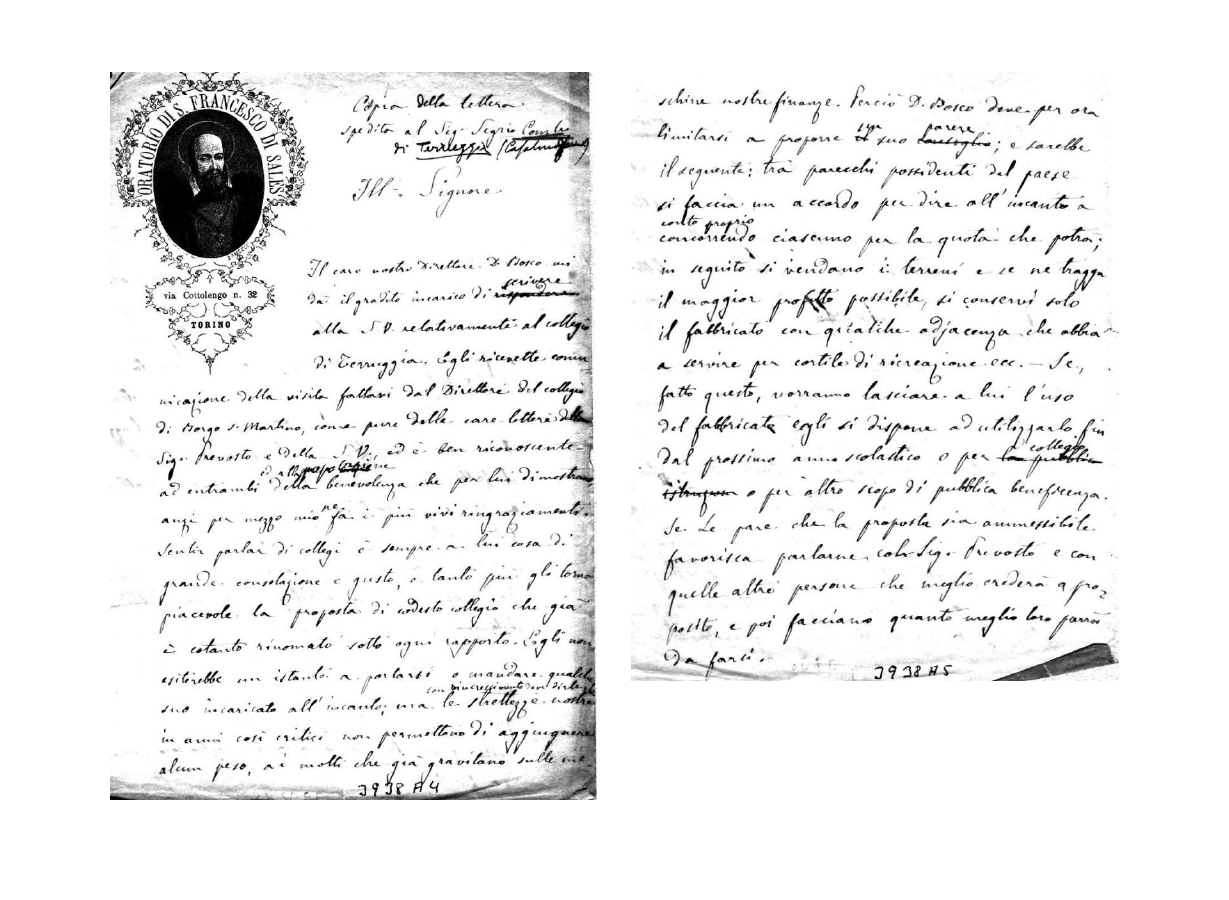 ORATORIO DI S. FRANCESCO DI SALES
via Cottolengo n. 32
TORINO
Copia della lettera
spedita al Sig. Segrio Comle
di Terruggia (Casalmonf)
Ill.mo Signore
Il caro nostro Direttore D. Bosco mi
scrivere
dà il gradito incarico di rispondere
alla S V. relativamente al collegio
di Terruggia. Egli ricevette comu
nicazione della visita fattavi dal Direttore del collegio
di Borgo S. Martino, come pure delle care lettere della
Sig. Prevosto e della S. V. ed è ben riconoscente
ed alla
ad entrambi della benevolenza che per lui dimostrano
ne
anzi per mezzo mio fa i più vivi ringraziamenti.
Sentir parlar di collegi è sempre a lui cosa di
grande consolazione e gusto, e tanto più gli torna
piacevole la proposta di codesto collegio che già
è cotanto rinomato sotto ogni rapporto. Egli non
esiterebbe un istante a portarsi o mandare qualche
con rincrescimento deve dirlo
suo incaricato all'incanto; ma le strettezze nostre
in anni così critici non permettono di aggiungere
alcun peso, ai molti che già gravitano sulle me
3938 A4
schine nostre finanze. Perciò D. Bosco deve per ora
parere
limitarsi a proporre il suo consiglio; e sarebbe
il seguente: tra parecchi possidenti del paese
si faccia un accordo per dire all'incanto a
conto proprio
concorrendo ciascuno per la quota che potrà;
in seguito si vendano i terreni e se ne tragga
il maggior profitto possibile, si conservi solo
il fabbricato con qualche adjacenza che abbia
a servire per cortile di ricreazione ecc. — Se,
fatto questo, vorranno lasciare a lui l'uso
del fabbricato egli si dispone ad utilizzarlo fin
collegio
dal prossimo anno scolastico o per la pubblica
istruzione o per altro scopo di pubblica beneficenza.
Se Le pare che la proposta sia ammessibile
favorisca parlarne col Sig. Prevosto e con
quelle altre persone che meglio crederà a pro
posito, e poi facciano quanto meglio loro parrà
da farsi.
3938 A5